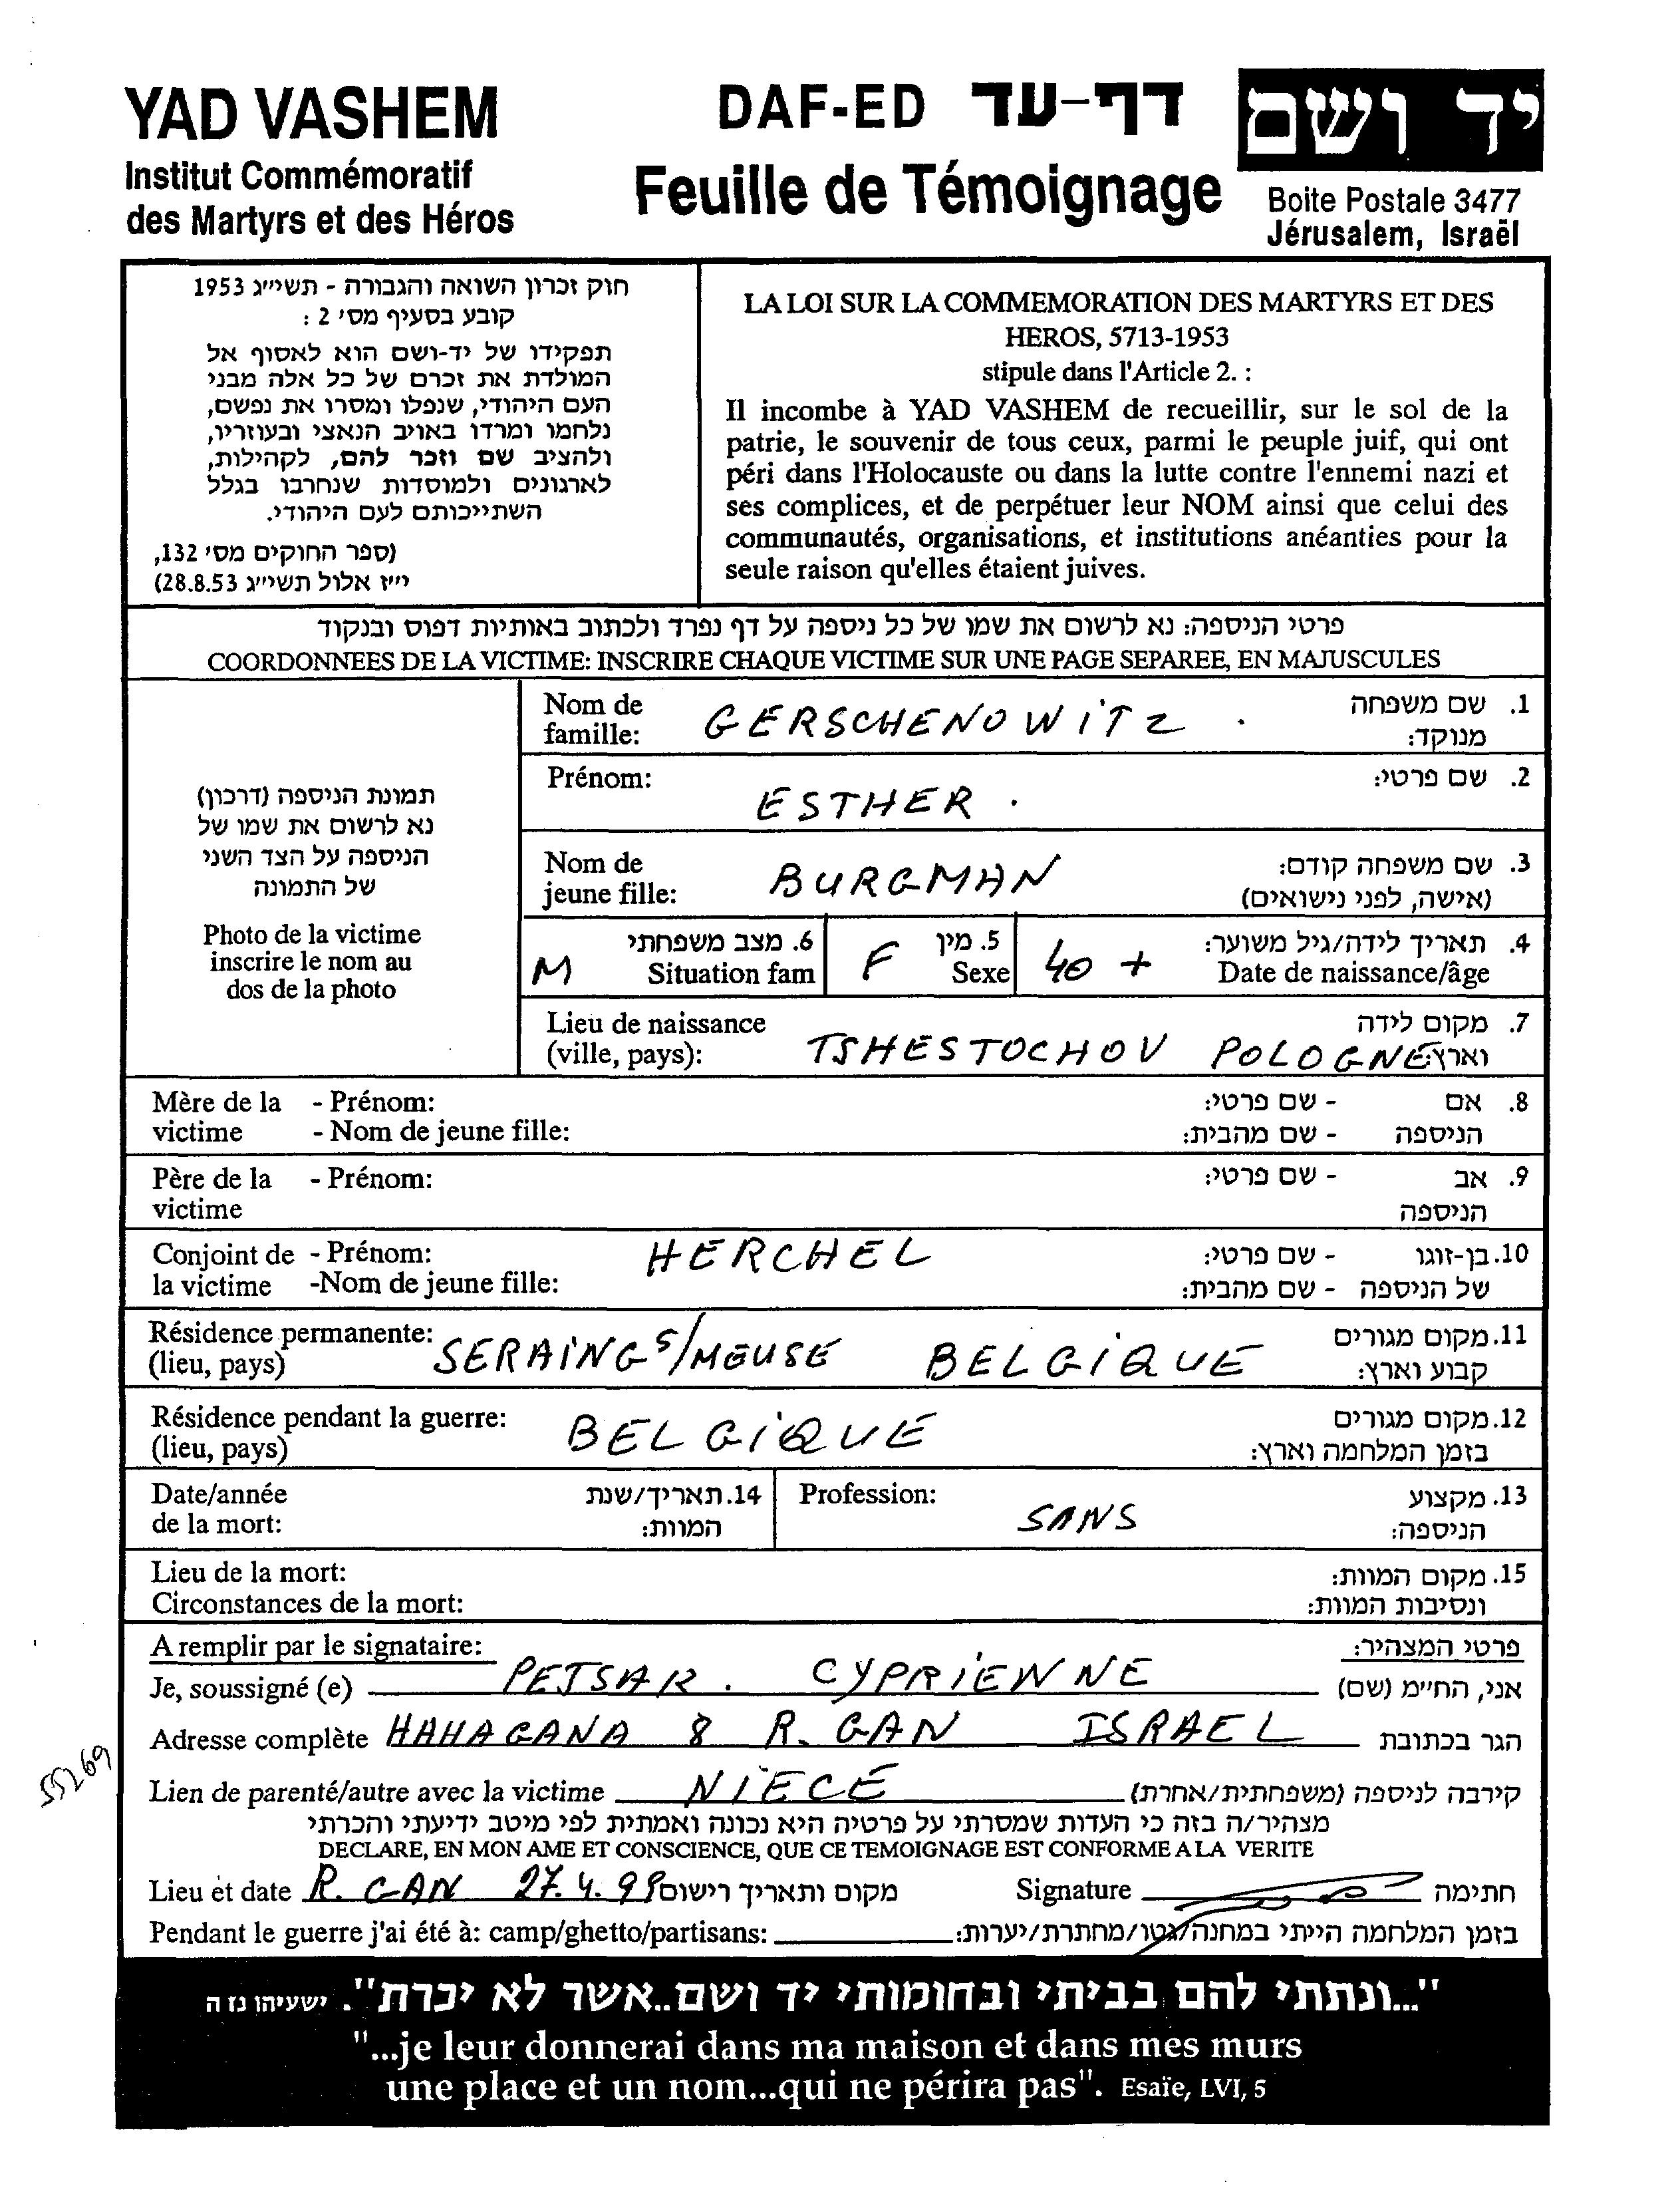 YAD VASHEM
Institut Commémoratif
des Martyrs et des Héros
DAF-ED דף-עד
Feuille de Témoignage
יד ושם
Boite Postale 3477
Jérusalem, Israël
חוק זכרון השואה והגבורה - תשי״ג 1953
קובע בסעיף מס׳ 2 :
תפקידו של יד-ושם הוא לאסוף אל
המולדת את זכרם של כל אלה מבני
העם היהודי, שנפלו ומסרו את נפשם,
נלחמו ומרדו באויב הנאצי ובעוזריו,
ולהציב שם וזכר להם, לקהילות,
לארגונים ולמוסדות שנחרבו בגלל
השתייכותם לעם היהודי.
(ספר החוקים מס׳ 132,
י״ז אלול תשי״ג 28.8.53)
LA LOI SUR LA COMMEMORATION DES MARTYRS ET DES
HEROS, 5713-1953
stipule dans l'Article 2. :
Il incombe à YAD VASHEM de recueillir, sur le sol de la
patrie, le souvenir de tous ceux, parmi le peuple juif, qui ont
péri dans l'Holocauste ou dans la lutte contre l'ennemi nazi et
ses complices, et de perpétuer leur NOM ainsi que celui des
communautés, organisations, et institutions anéanties pour la
seule raison qu'elles étaient juives.
פרטי הניספה: נא לרשום את שמו של כל ניספה על דף נפרד ולכתוב באותיות דפוס ובנקוד
COORDONNEES DE LA VICTIME: INSCRIRE CHAQUE VICTIME SUR UNE PAGE SEPAREE, EN MAJUSCULES
תמונת הניספה (דרכון)
נא לרשום את שמו של
הניספה על הצד השני
של התמונה
Photo de la victime
inscrire le nom au
dos de la photo
Nom de GERSCHENOWITZ . 1. שם משפחה
famille: מנוקד:
Prénom: ESTHER . 2. שם פרטי:
Nom de BURGMAN 3. שם משפחה קודם:
jeune fille: (אישה, לפני נישואים)
6. מצב משפחתי 5. מין 4. תאריך לידה/גיל משוער:
M Situation fam F Sexe 40 + Date de naissance/âge
Lieu de naissance 7. מקום לידה
(ville, pays): TSHESTOCHOV POLOGNE וארץ:
Mère de la - Prénom: 8. אם - שם פרטי:
victime - Nom de jeune fille: הניספה - שם מהבית:
Père de la - Prénom: 9. אב - שם פרטי:
victime הניספה
Conjoint de - Prénom: HERCHEL 10. בן-זוגו - שם פרטי:
la victime -Nom de jeune fille: של הניספה - שם מהבית:
Résidence permanente: SERAING S/MEUSE BELGIQUE 11. מקום מגורים
(lieu, pays) קבוע וארץ:
Résidence pendant la guerre: BELGIQUE 12. מקום מגורים
(lieu, pays) בזמן המלחמה וארץ:
Date/année 14. תאריך/שנת Profession: SANS 13. מקצוע
de la mort: המוות: הניספה:
Lieu de la mort: 15. מקום המוות:
Circonstances de la mort: ונסיבות המוות:
A remplir par le signataire: פרטי המצהיר:
Je, soussigné (e) PETSAR . CYPRIENNE אני, החי״מ (שם)
Adresse complète HAHAGANA 8 R. GAN ISRAEL הגר בכתובת
55269
Lien de parenté/autre avec la victime NIECE קירבה לניספה (משפחתית/אחרת)
מצהיר/ה בזה כי העדות שמסרתי על פרטיה היא נכונה ואמתית לפי מיטב ידיעתי והכרתי
DECLARE, EN MON AME ET CONSCIENCE, QUE CE TEMOIGNAGE EST CONFORME A LA VERITE
Lieu et date R. GAN 27.4.99 מקום ותאריך רישום Signature חתימה
Pendant le guerre j'ai été à: camp/ghetto/partisans: בזמן המלחמה הייתי במחנה/גטו/מחתרת/יערות:
"...ונתתי להם בביתי ובחומותי יד ושם..אשר לא יכרת". ישעיהו נז ה
"...je leur donnerai dans ma maison et dans mes murs
une place et un nom...qui ne périra pas". Esaïe, LVI, 5